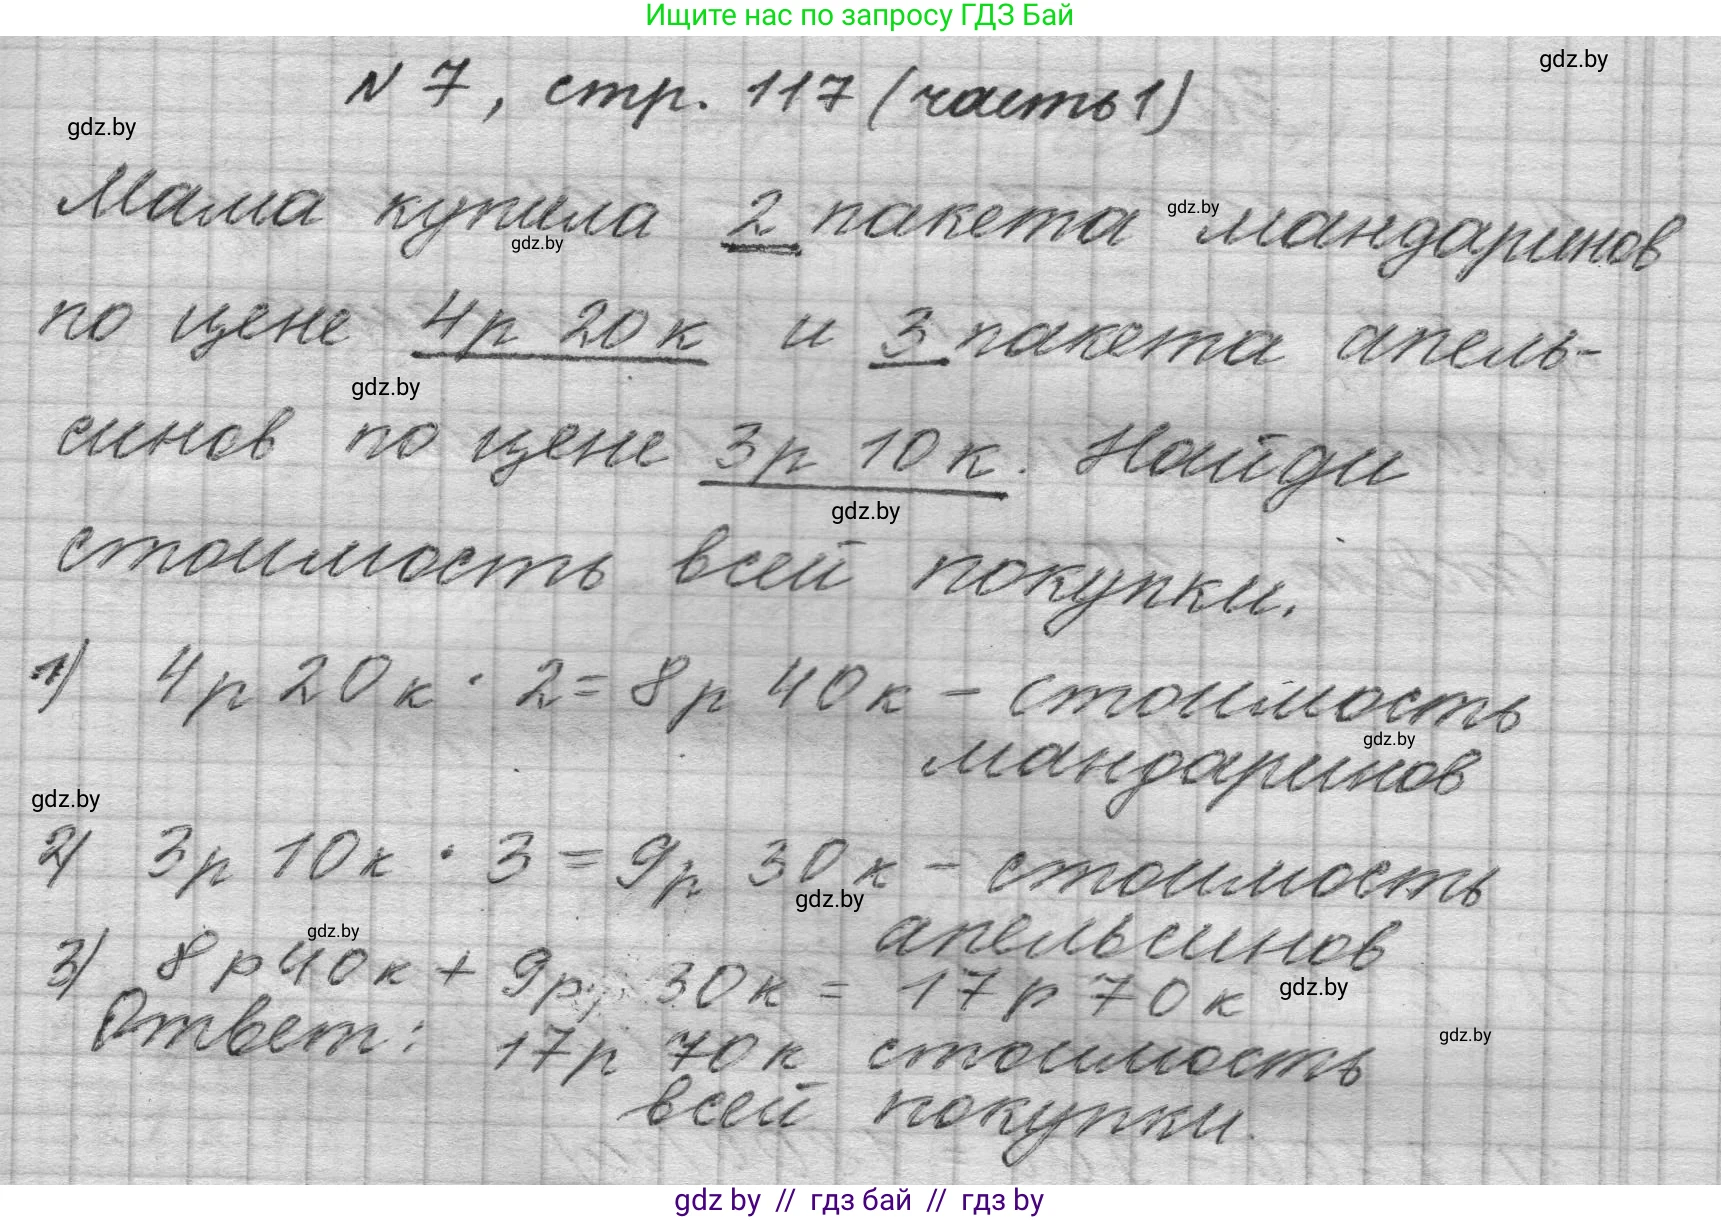 Ищите нас по запросу ГДЗ Бай
gdz.by
N 7, стр. 117 (часть 1)
gdz.by
Мама купила 2 пакета gdz.by мандаринов
gdz.by
по цене 4р 20 к и 3 пакета апель-
gdz.by
синов по цене 3р 10 к. Найди
gdz.by
стоимость всей покупки.
1) 4р 20 к · 2 = 8р 40 к – стоимость
gdz.by
мандаринов
gdz.by
2) 3р 10 к · 3 = 9р 30 к – стоимость
gdz.by
апельсинов
gdz.by
3) 8р 40к + 9р 30к = 17р 70к
gdz.by
gdz.by
Ответ: 17р 70к стоимость
всей покупки.
gdz by // гдз бай // гдз by